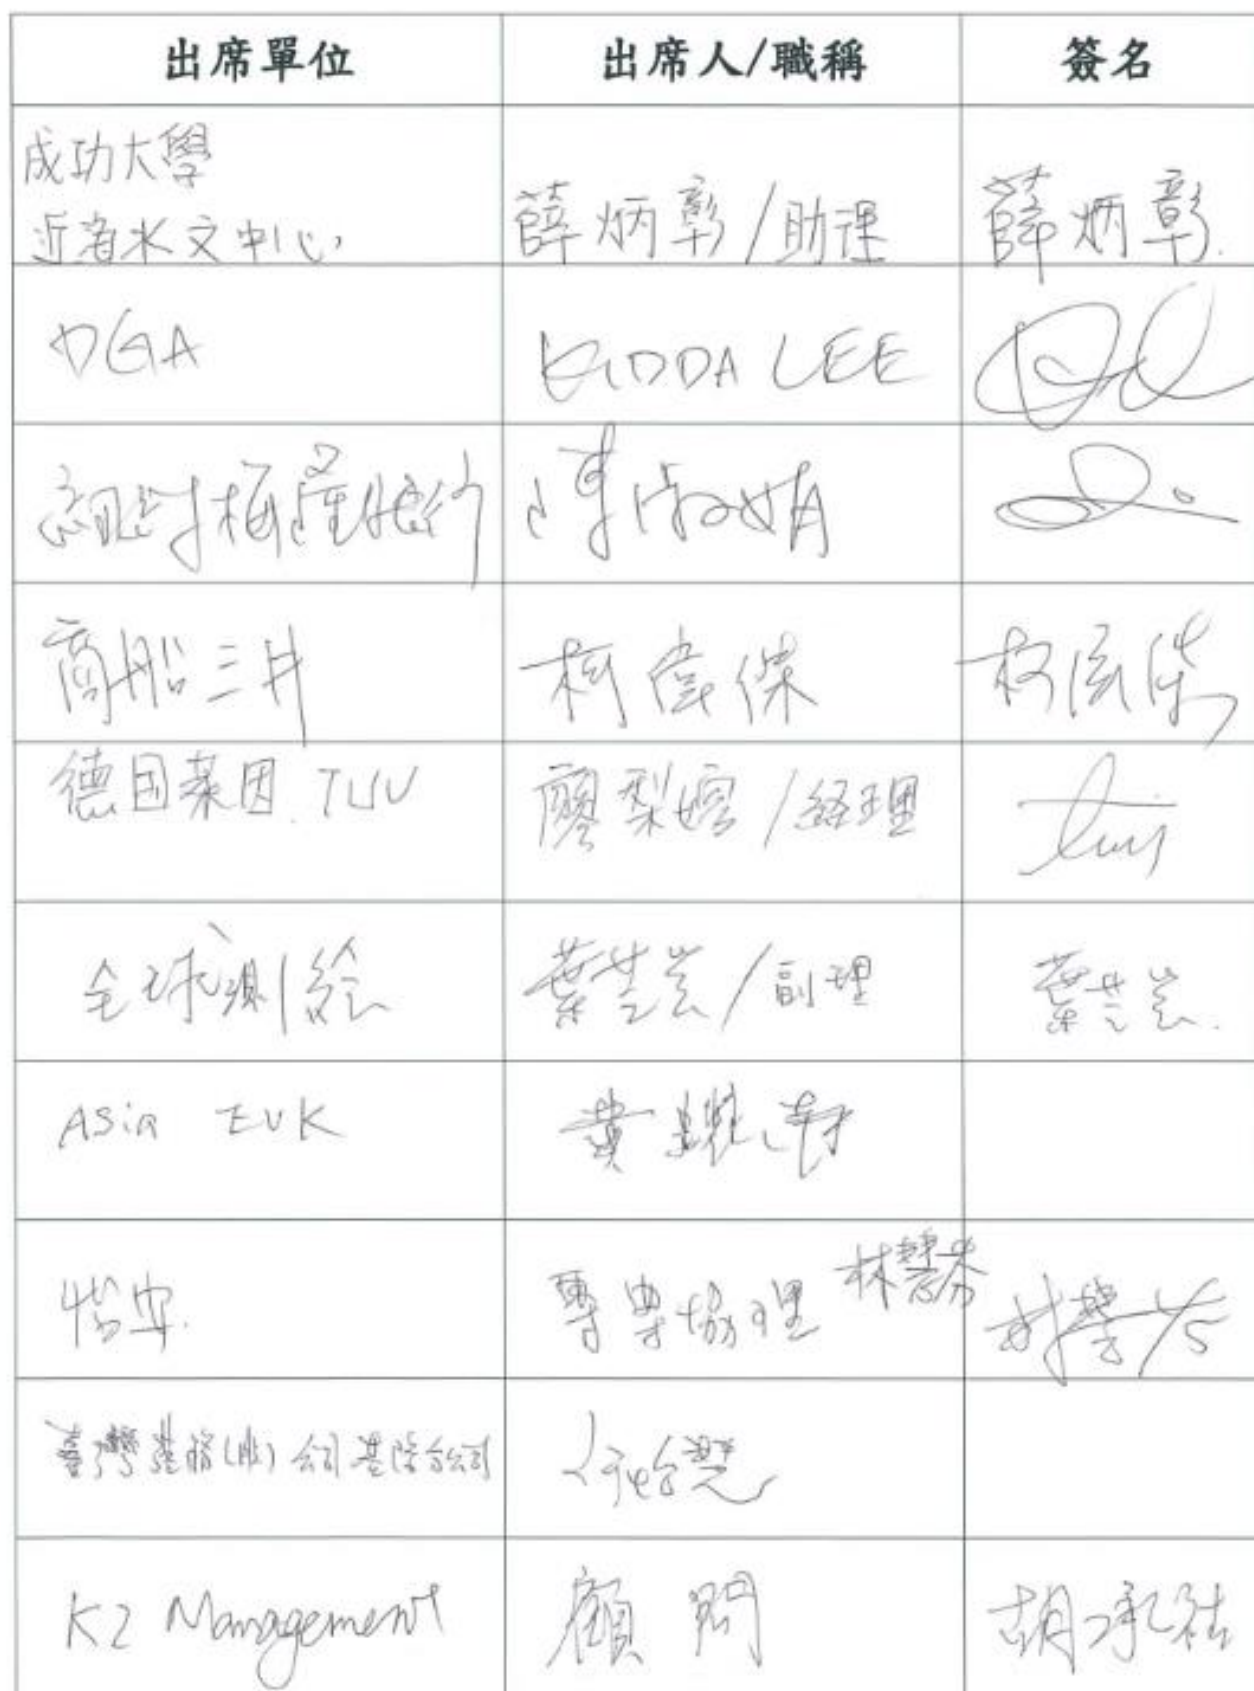 出席單位 出席人/職稱 簽名
成功大學
近海水文中心 薛炳彰/助理 薛炳彰
DGA KIDDA LEE
陳淑娟
商船三井 柯偉傑 柯偉傑
德国萊因 TUV 廖梨媛/經理
全球測繪 葉芝岑/副理 葉芝岑
ASia EVK 黃
怡安 專案協理 林慧芬 林慧芬
臺灣港務(股)公司基隆分公司
K2 Management 顧問 胡承祐